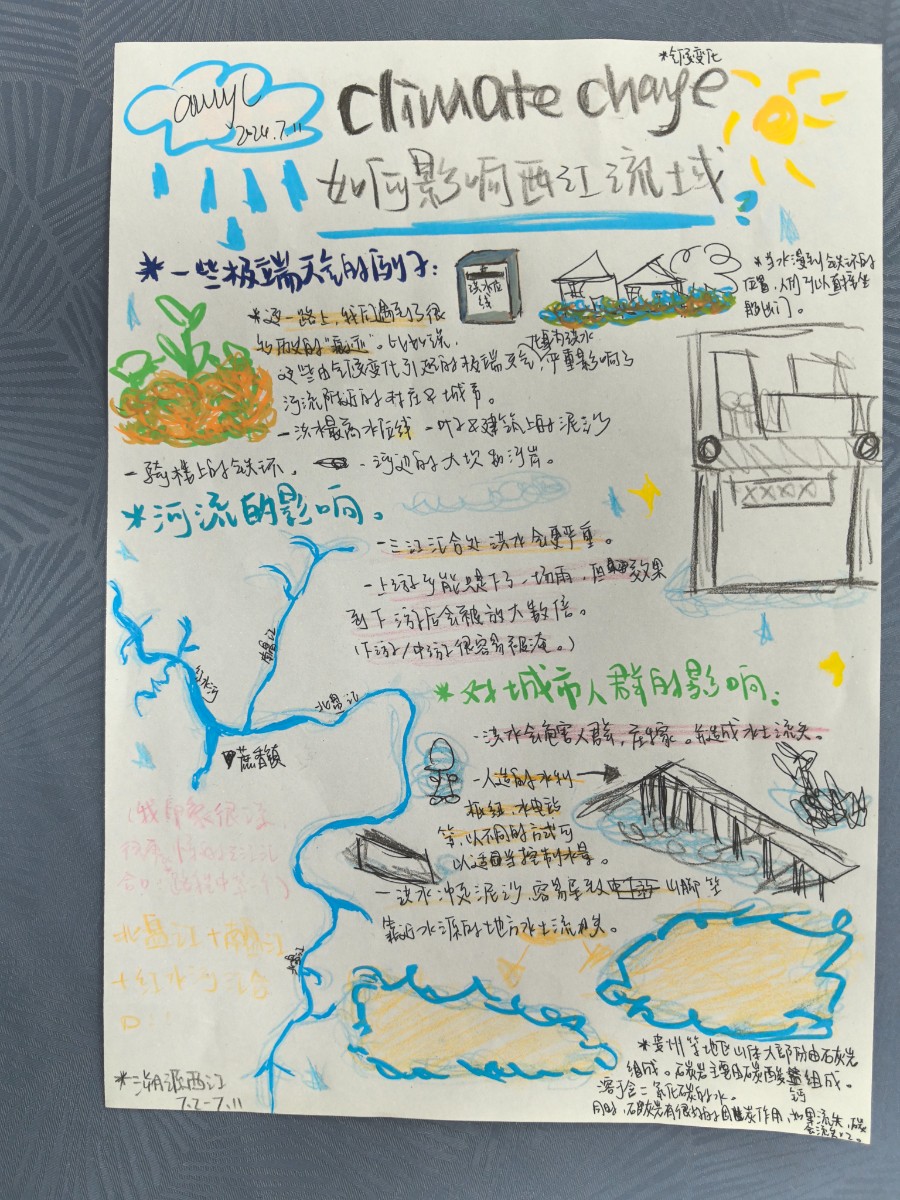 amyC
2024.7.11
*气候变化
climate change
如何影响西江流域?
*一些极端天气的例子:
洪水位线
*当水漫到铁环的
位置,人们可以直接坐
船出门。
*这一路上,我们遇到了很
多历史的"痕迹"。比如说,
暴雨洪水
这些由气候变化引起的极端天气,严重影响了
河流附近的村庄&城市。
-洪水最高水位线 -叶子&建筑上的泥沙
-骑楼上的铁环。 -河边的大坝和河岸。
*河流的影响。
-三江汇合处洪水会更严重。
-上游可能是下了一场雨,但效果
到下游后会被放大数倍。
(下游/中游很容易被淹。)
南盘江
红水河
北盘江
蔗香镇
*对城市人群的影响:
-洪水会危害人群,庄家。并造成水土流失。
-人造的水利
枢纽,水电站
等,以不同的方式可
以适当控制水量。
-洪水冲页泥沙,容易导致山脚等
靠近水源的地方水土流失。
(我印象很深
北盘江+南盘江
+红水河汇合
口
*溯源西江
7.2-7.11
*贵州等地区山体大部分由石灰岩
组成。石灰岩主要由碳酸钙组成。
溶于含二氧化碳的水。
同时,石灰岩有很好的固碳作用,如果流失,碳
会流失x2。